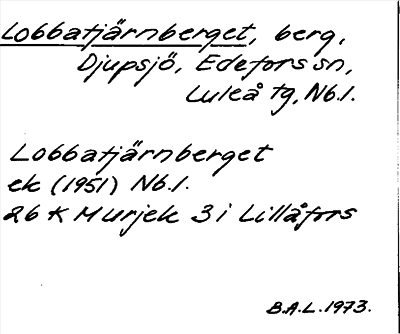 Lobbatjärnberget, berg,
Djupsjö, Edefors sn,
Luleå tg, Nb.l.
Lobbatjärnberget
ek (1951) Nb.l.
26 K Murjek 3 i Lillåfors
B.A.L. 1973.